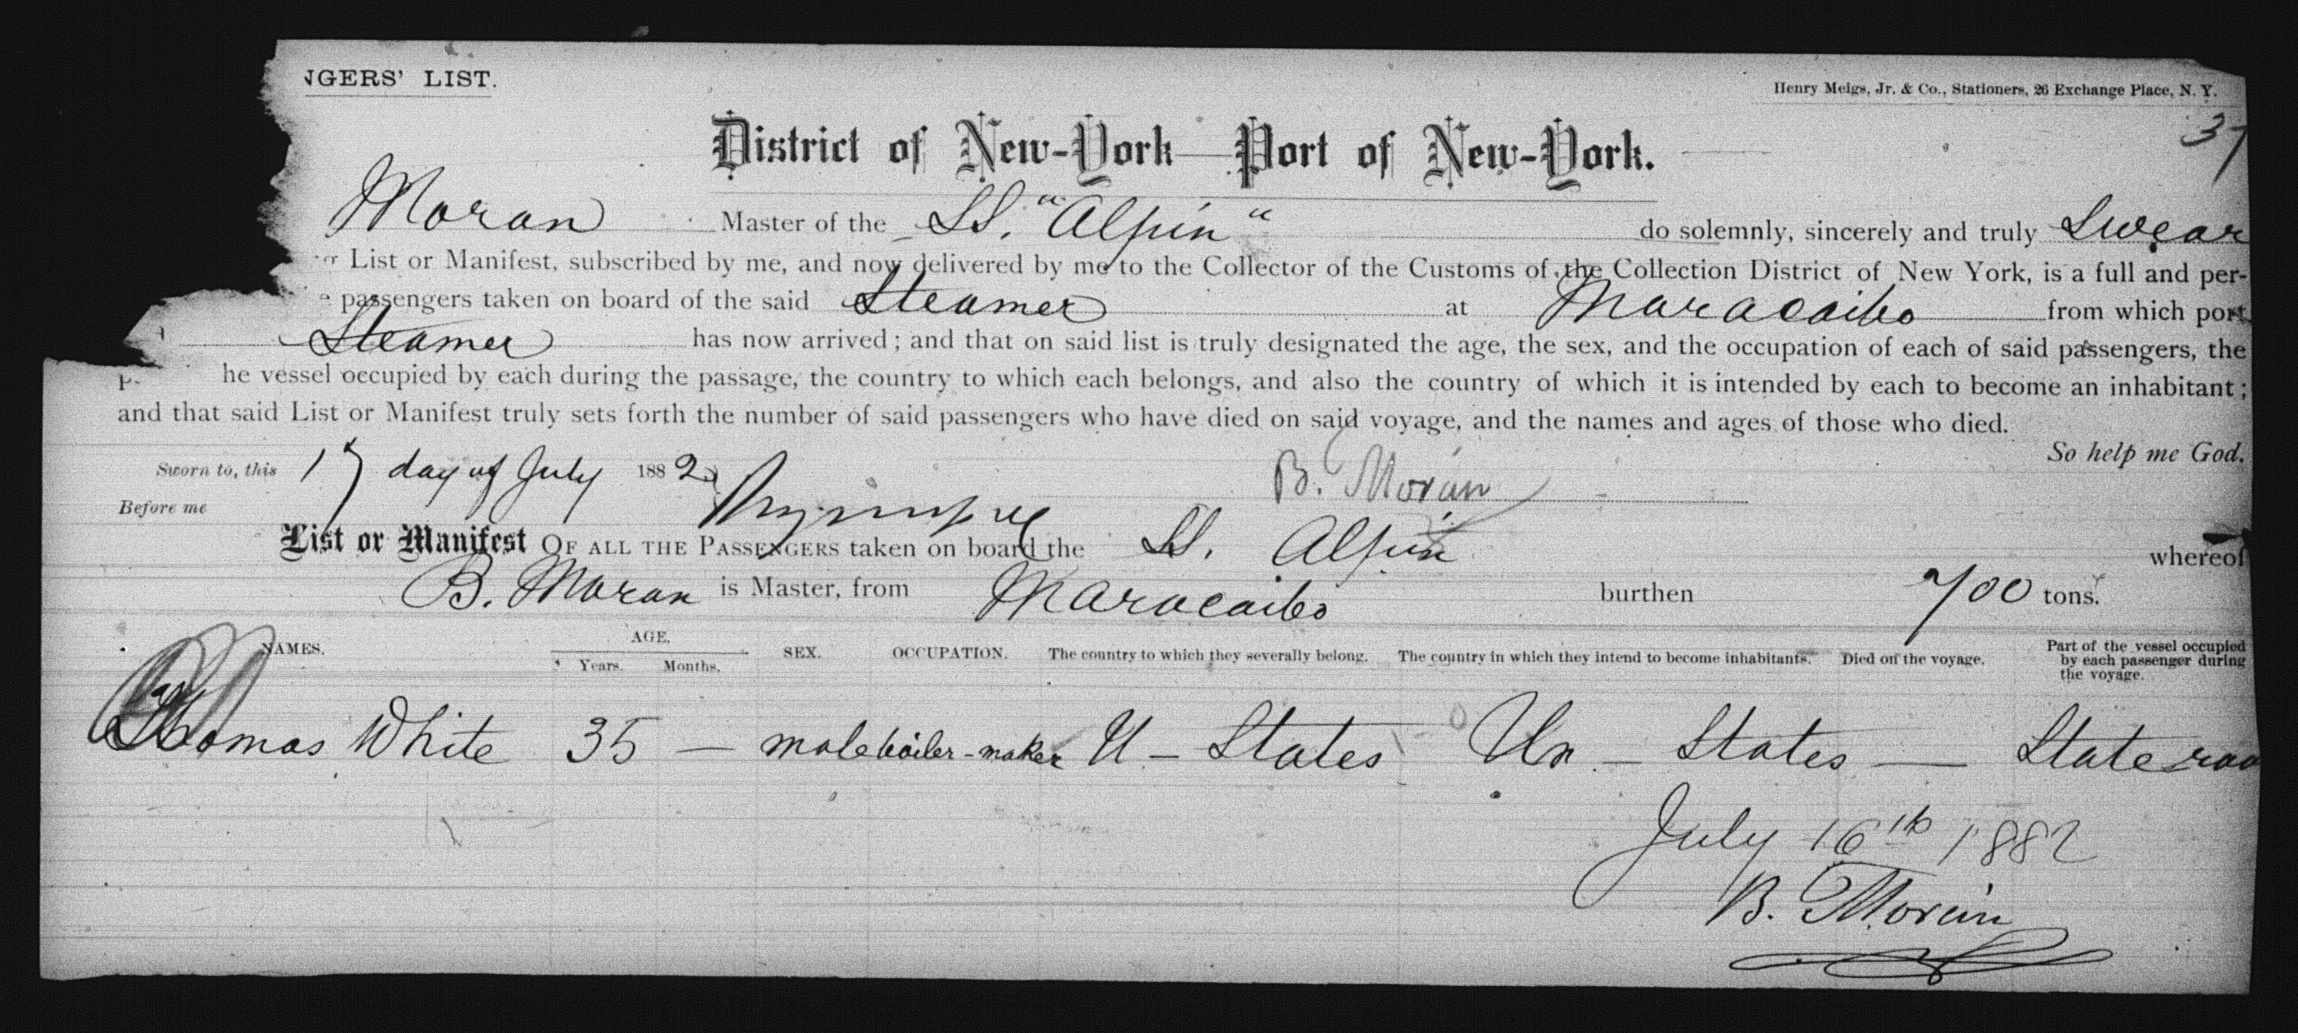 NGERS' LIST.
Henry Meigs, Jr. & Co., Stationers, 26 Exchange Place, N. Y.
37
District of New-York—Port of New-York.
Moran Master of the SS. "Alpin" do solemnly, sincerely and truly Swear
List or Manifest, subscribed by me, and now delivered by me to the Collector of the Customs of the Collection District of New York, is a full and per-
passengers taken on board of the said Steamer at Maracaibo from which port
Steamer has now arrived; and that on said list is truly designated the age, the sex, and the occupation of each of said passengers, the
he vessel occupied by each during the passage, the country to which each belongs, and also the country of which it is intended by each to become an inhabitant;
and that said List or Manifest truly sets forth the number of said passengers who have died on said voyage, and the names and ages of those who died.
So help me God.
Sworn to, this 17 day of July 1882
B. Moran
Before me
List or Manifest OF ALL THE PASSENGERS taken on board the SS. Alpin whereof
B. Moran is Master, from Maracaibo burthen 700 tons.
NAMES. AGE. Years. Months. SEX. OCCUPATION. The country to which they severally belong. The country in which they intend to become inhabitants. Died on the voyage. Part of the vessel occupied by each passenger during the voyage.
Thomas White 35 — male boiler-maker U - States Un - States — State roo
July 16th 1882
B. Moran